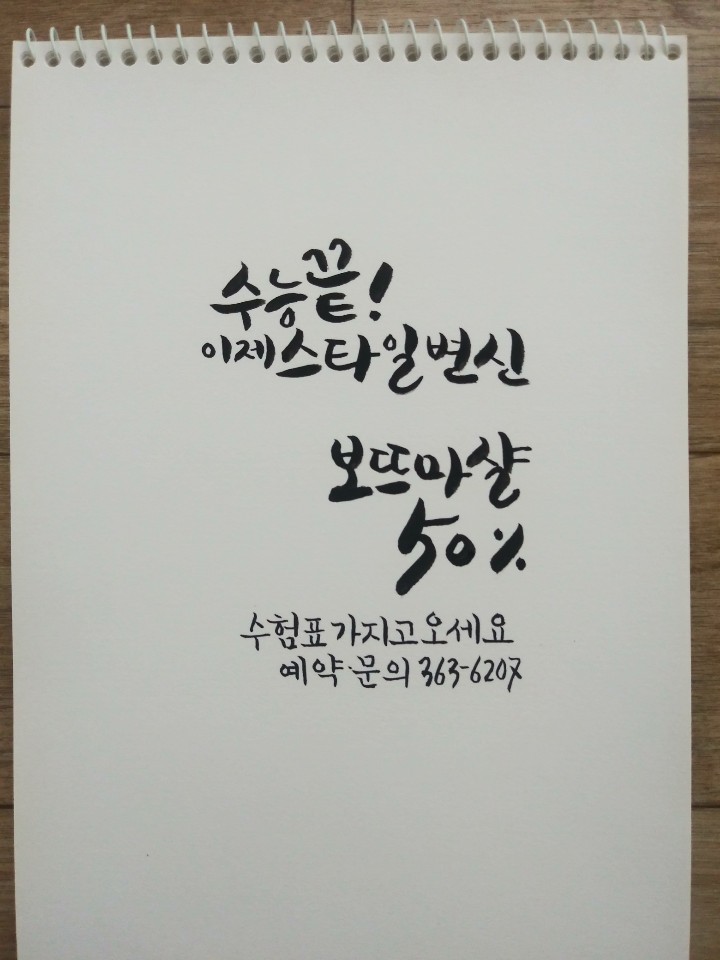 수능끝!
이제스타일변신
보뜨마샬
50%
수험표가지고오세요
예약·문의 363-6207